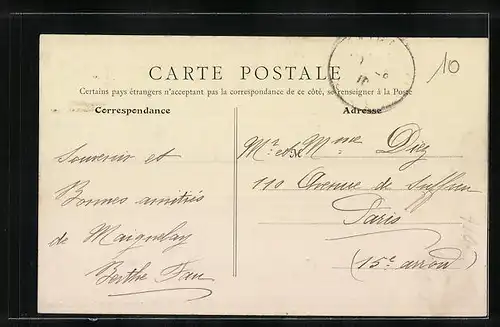 CARTE POSTALE
Certains pays étrangers n'acceptant pas la correspondance de ce côté, se renseigner à la Poste
Correspondance
Adresse
10
Souvenir et
Bonnes amitiés
de Maignelay
Berthe
Mr et Mme Diey
110 Avenue de Suffren
Paris
(15e arrond)